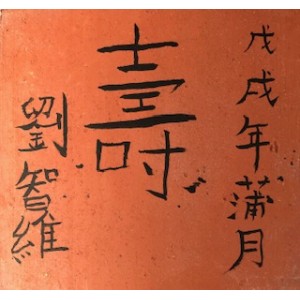 戊戌年蒲月
壽
劉智維